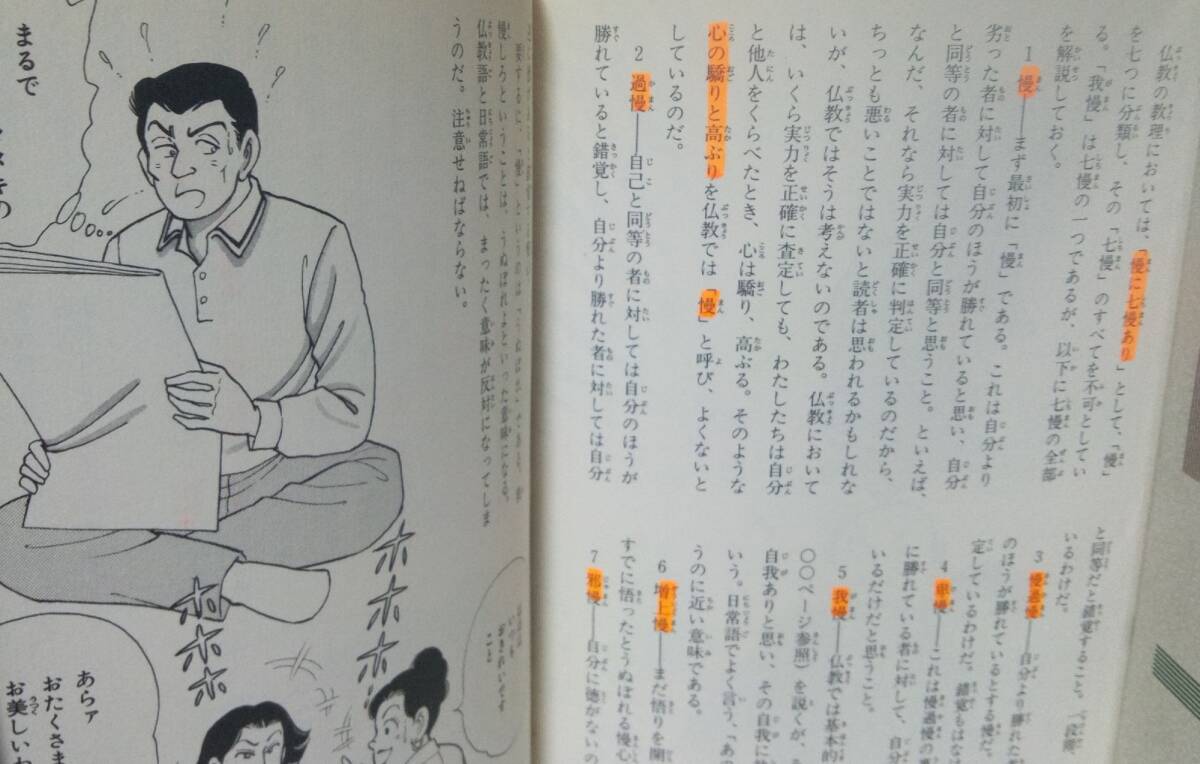 仏教の教理においては、「慢に七慢あり」として、「慢」
を七つに分類し、その「七慢」のすべてを不可としてい
る。「我慢」は七慢の一つであるが、以下に七慢の全部
を解説しておく。
1 慢——まず最初に「慢」である。これは自分より
劣った者に対して自分のほうが勝れていると思い、自分
と同等の者に対しては自分と同等と思うこと。といえば、
なんだ、それなら実力を正確に判定しているのだから、
ちっとも悪いことではないと読者は思われるかもしれな
いが、仏教ではそうは考えないのである。仏教において
は、いくら実力を正確に査定しても、わたしたちは自分
と他人をくらべたとき、心は驕り、高ぶる。そのような
心の驕りと高ぶりを仏教では「慢」と呼び、よくないと
しているのだ。
2 過慢——自己と同等の者に対しては自分のほうが
勝れていると錯覚し、自分より勝れた者に対しては自分
と同等だと錯覚すること。
いるわけだ。
3 慢過慢——自分より勝れた
のほうが勝れているとする慢だ。
定しているわけだ。錯覚もはな
4 卑慢——これは慢過慢の
に勝れている者に対して、自分
いるだけだと思うこと。
5 我慢——仏教では基本的
〇〇ページ参照）を説くが、
自我ありと思い、その自我に
いう。日常語でよく言う、「あの
うのに近い意味である。
6 増上慢——まだ悟りを開
すでに悟ったとうぬぼれる慢心
7 邪慢——自分に徳がないの
要するに、「慢」というのは
慢しろということは、うぬぼれよといった意味になる。
仏教語と日常語では、まったく意味が反対になってしま
うのだ。注意せねばならない。
まるで
ホホホホ
ホホホ
あらァ
おたくさま
お美しいわ